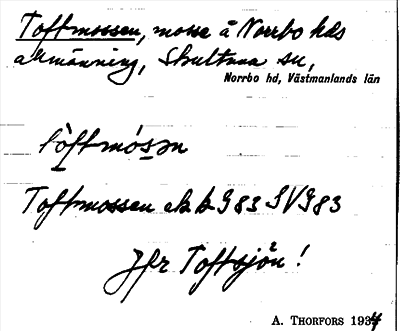 Toftmossen, mosse å Norrbo hds
allmänning, Skultuna sn,
Norrbo hd, Västmanlands län
tòftmósən
Toftmossen ek b 983 SV983
Jfr Toftsjön!
A. THORFORS 1934